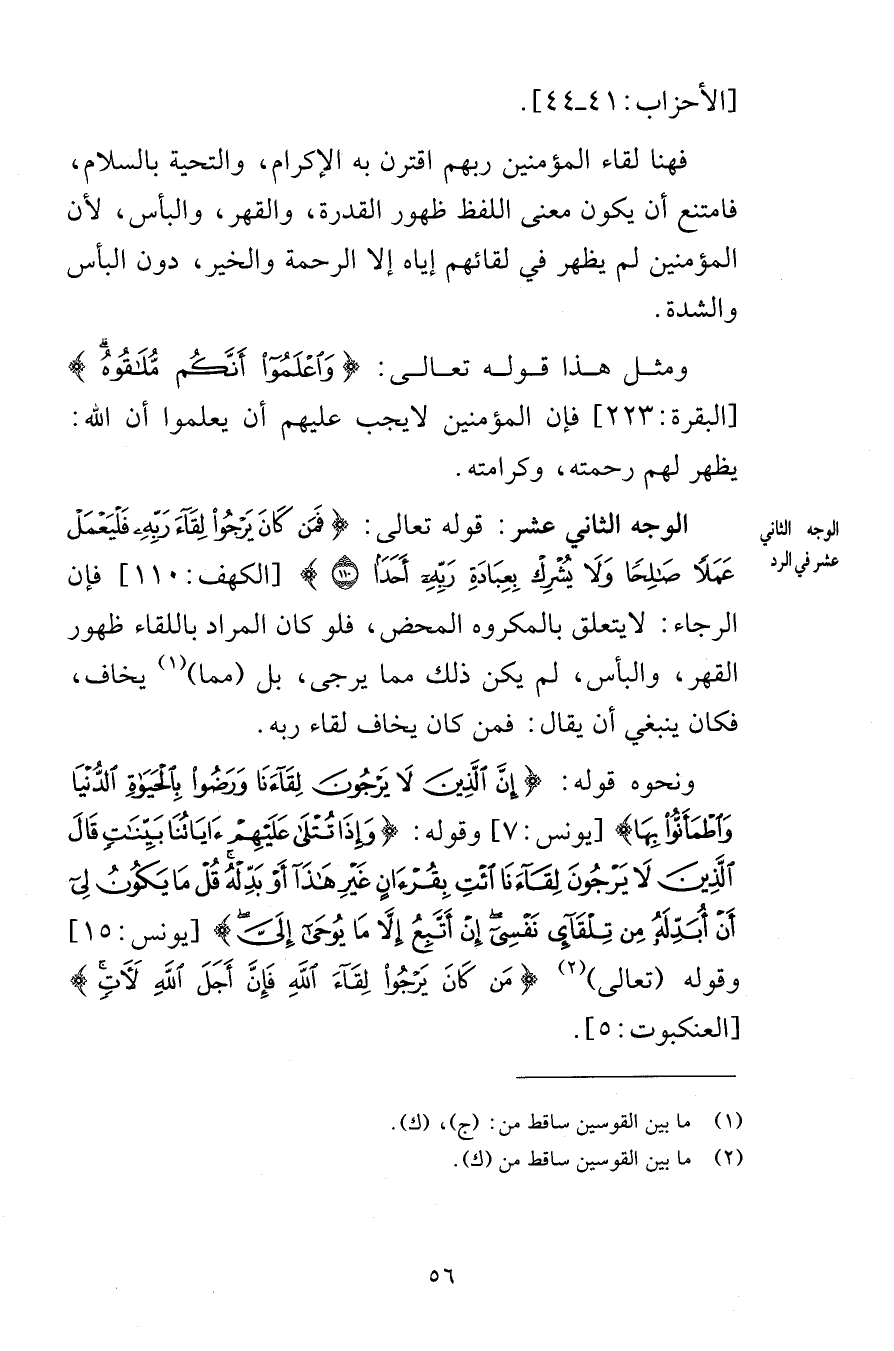 [الأحزاب: ٤١-٤٤].
فهنا لقاء المؤمنين ربهم اقترن به الإكرام، والتحية بالسلام،
فامتنع أن يكون معنى اللفظ ظهور القدرة، والقهر، والبأس، لأن
المؤمنين لم يظهر في لقائهم إياه إلا الرحمة والخير، دون البأس
والشدة.
ومثل هذا قوله تعالى: ﴿وَٱعۡلَمُوٓاْ أَنَّكُم مُّلَٰقُوهُۗ﴾
[البقرة: ٢٢٣] فإن المؤمنين لايجب عليهم أن يعلموا أن الله:
يظهر لهم رحمته، وكرامته.
الوجه الثاني عشر: قوله تعالى: ﴿فَمَن كَانَ يَرۡجُواْ لِقَآءَ رَبِّهِۦ فَلۡيَعۡمَلۡ
الوجه الثاني
عشر في الرد
عَمَلٗا صَٰلِحٗا وَلَا يُشۡرِكۡ بِعِبَادَةِ رَبِّهِۦٓ أَحَدَۢا ١١٠﴾ [الكهف: ١١٠] فإن
الرجاء: لايتعلق بالمكروه المحض، فلو كان المراد باللقاء ظهور
القهر، والبأس، لم يكن ذلك مما يرجى، بل (مما)(١) يخاف،
فكان ينبغي أن يقال: فمن كان يخاف لقاء ربه.
ونحوه قوله: ﴿إِنَّ ٱلَّذِينَ لَا يَرۡجُونَ لِقَآءَنَا وَرَضُواْ بِٱلۡحَيَوٰةِ ٱلدُّنۡيَا
وَٱطۡمَأَنُّواْ بِهَا﴾ [يونس: ٧] وقوله: ﴿وَإِذَا تُتۡلَىٰ عَلَيۡهِمۡ ءَايَاتُنَا بَيِّنَٰتٖ قَالَ
ٱلَّذِينَ لَا يَرۡجُونَ لِقَآءَنَا ٱئۡتِ بِقُرۡءَانٍ غَيۡرِ هَٰذَآ أَوۡ بَدِّلۡهُۚ قُلۡ مَا يَكُونُ لِيٓ
أَنۡ أُبَدِّلَهُۥ مِن تِلۡقَآيِٕ نَفۡسِيٓۖ إِنۡ أَتَّبِعُ إِلَّا مَا يُوحَىٰٓ إِلَيَّۖ﴾ [يونس: ١٥]
وقوله (تعالى)(٢) ﴿مَن كَانَ يَرۡجُواْ لِقَآءَ ٱللَّهِ فَإِنَّ أَجَلَ ٱللَّهِ لَأٓتٖۚ﴾
[العنكبوت: ٥].
(١) ما بين القوسين ساقط من: (ج)، (ك).
(٢) ما بين القوسين ساقط من (ك).
٥٦